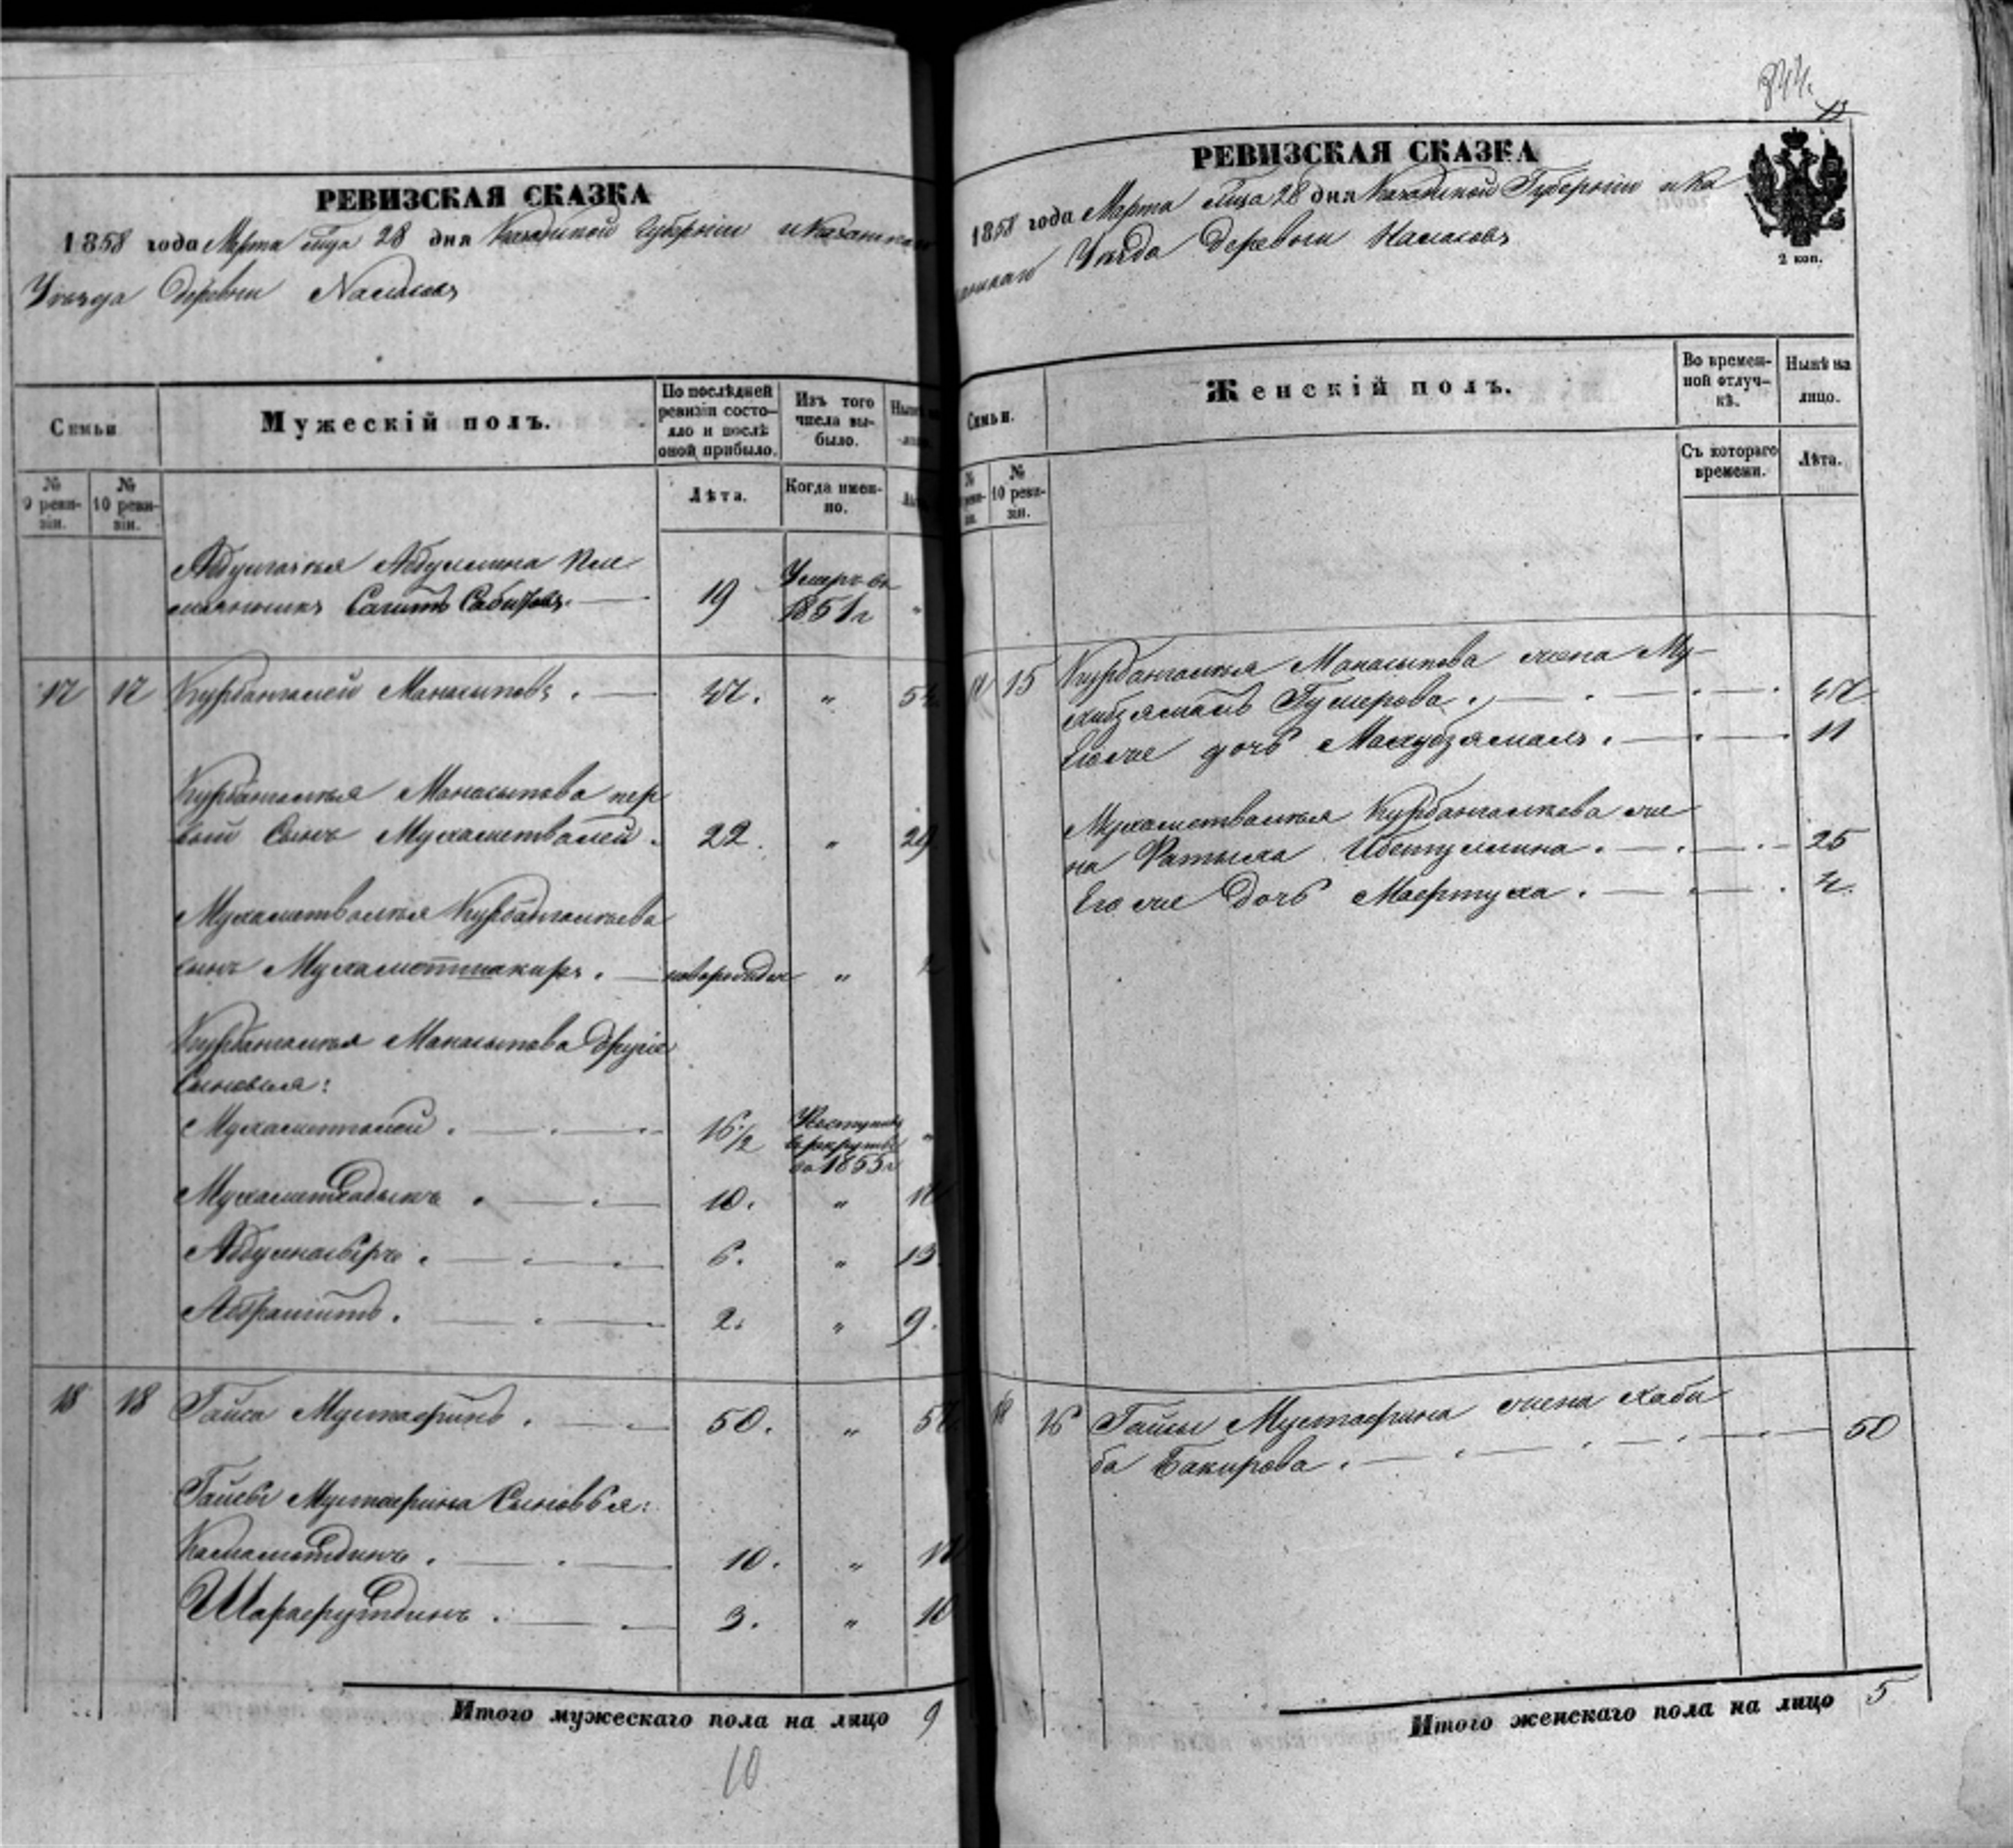 РЕВИЗСКАЯ СКАЗКА
1858 года Марта м-ца 28 дня Казанской Губернiи и Казанскаго
Уѣзда Деревни
Семьи
Мужескiй полъ.
По послѣдней ревизiи состояло и послѣ оной прибыло.
Изъ того числа выбыло.
№ 9 ревизiи.
№ 10 ревизiи.
Лѣта.
Когда именно.
Абдулгазыя Абдуллина пле
мянникъ Сагитъ Сабитовъ. 19 Умеръ въ
1851 г
17 17 Курбангалей Манасыповъ. 47. " 54
Курбангалея Манасыпова пер
вый Сынъ Мухаметвалей. 22. " 29
Мухаметвалея Курбангалеева
сынъ Мухаметшакиръ. новорожден "
Курбангалея Манасыпова другiе
Сыновья:
Мухаметгалей. 16 1/2 Поступилъ
въ рекруты
въ 1855 г "
Мухаметсадыкъ. 10. " 17
Абдулнасыръ. 6. " 13
Абдрашитъ. 2. " 9.
18 18 Гайса Мустафинъ. 50. " 57
Гайсы Мустафина Сыновья:
Камаметдинъ. 10. " 17
Шарафутдинъ. 3. " 10
Итого мужескаго пола на лицо 9
10
844.
РЕВИЗСКАЯ СКАЗКА
1858 года Марта м-ца 28 дня Казанской Губернiи и Ка
занскаго Уѣзда Деревни
2 коп.
Семьи.
Женскiй полъ.
Во временной отлучкѣ.
Нынѣ на лицо.
№ 10 ревизiи.
Съ котораго времени.
Лѣта.
17 15 Курбангалея Манасыпова жена Му-
хибзямалъ Гумерова. 47.
Его же дочь Махубзямалъ. 11
Мухаметвалея Курбангалеева же
на Фатыма Ибетуллина. 25
Его же Дочь Мафтуха. 4.
18 16 Гайсы Мустафина жена Хаби
ба Бакирова. 50
Итого женскаго пола на лицо 5